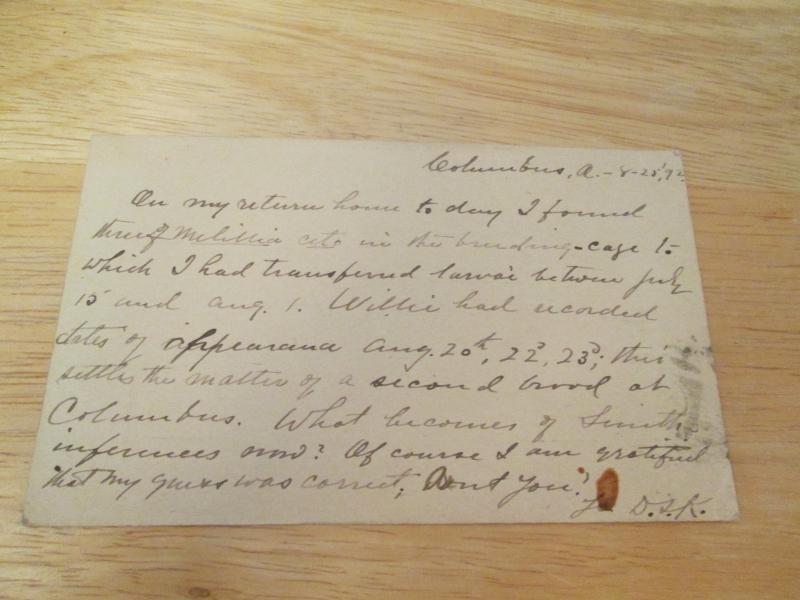 Columbus, O. - 8-25, '92.
On my return home to day I found
three Melittia ceto in the breeding-cage to
which I had transferred larvae between July
15 and Aug. 1. Willie had recorded
dates of appearance Aug. 20th, 22d, 23d; this
settles the matter of a second brood at
Columbus. What becomes of Smith
inferences now? Of course I am gratified
that my guess was correct; Dont you?
D.S.K.